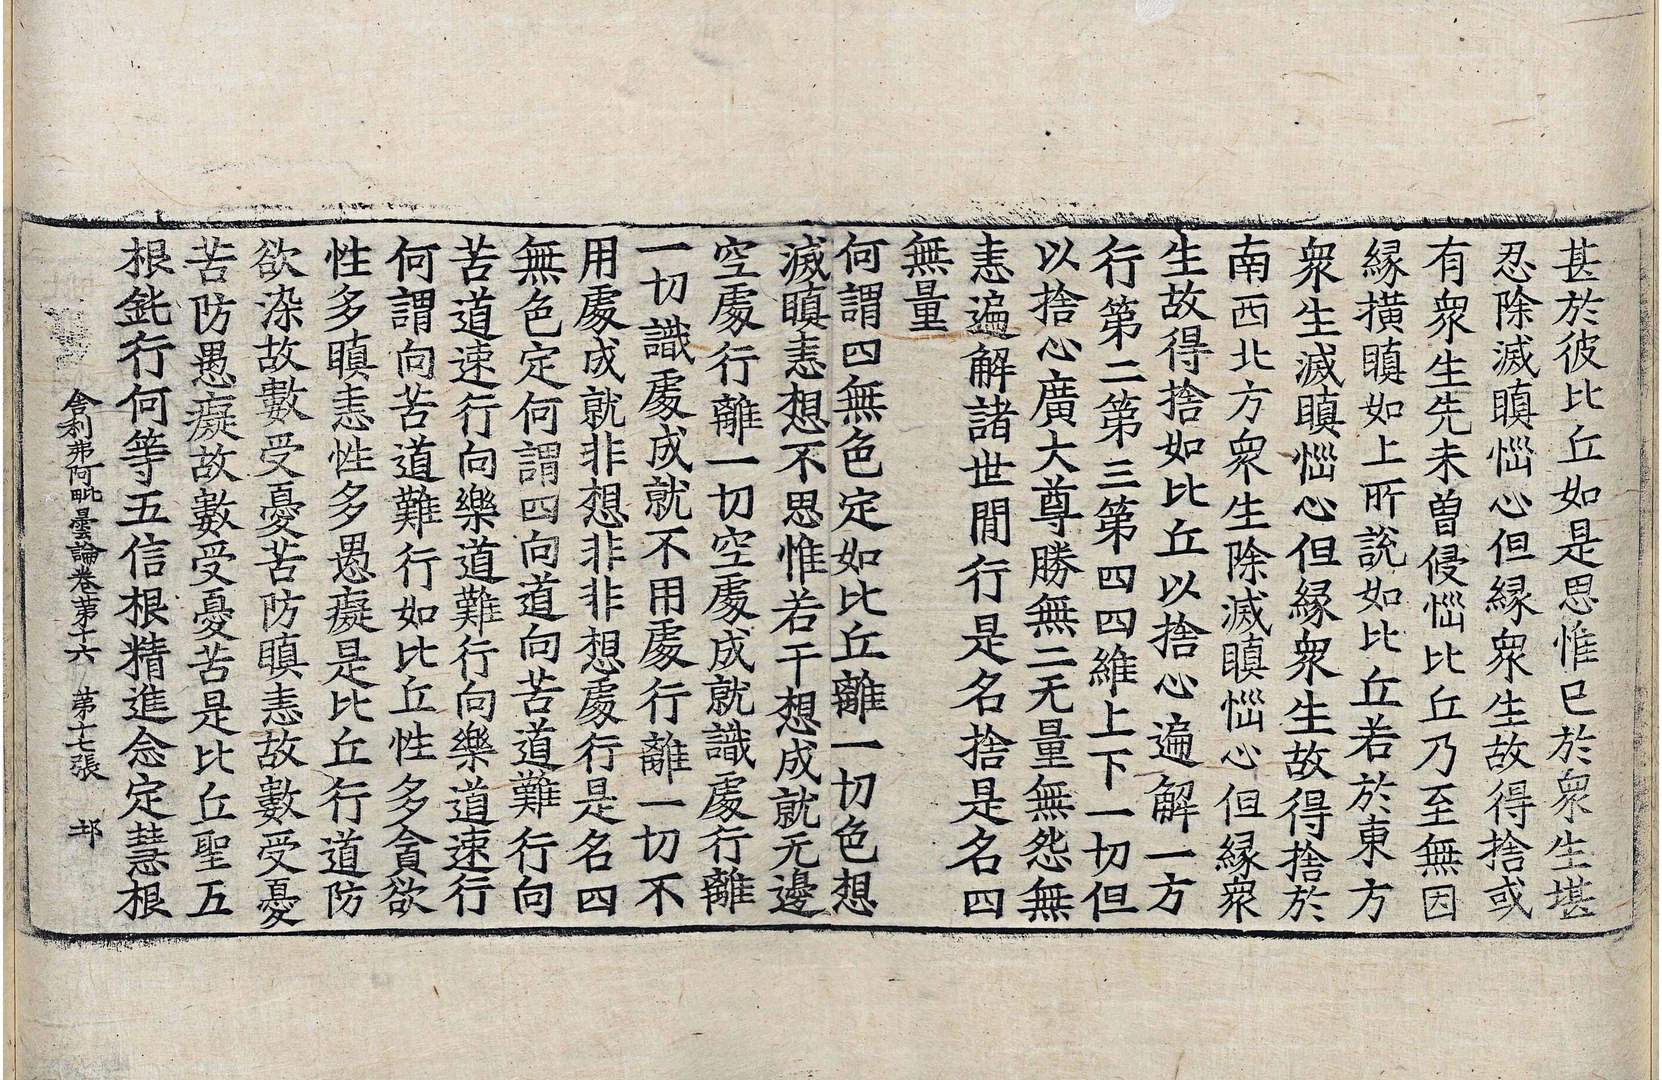 甚於彼比丘如是思惟已於衆生堪
忍除滅瞋惱心但緣衆生故得捨或
有衆生先未曽侵惱比丘乃至無因
緣橫瞋如上所說如比丘若於東方
衆生滅瞋惱心但緣衆生故得捨於
南西北方衆生除滅瞋惱心但緣衆
生故得捨如比丘以捨心遍解一方
行第二第三第四四維上下一切但
以捨心廣大尊勝無二无量無怨無
恚遍解諸世間行是名捨是名四
無量
何謂四無色定如比丘離一切色想
滅瞋恚想不思惟若干想成就无邊
空處行離一切空處成就識處行離
一切識處成就不用處行離一切不
用處成就非想非非想處行是名四
無色定何謂四向道向苦道難行向
苦道速行向樂道難行向樂道速行
何謂向苦道難行如比丘性多貪欲
性多瞋恚性多愚癡是比丘行道防
欲染故數受憂苦防瞋恚故數受憂
苦防愚癡故數受憂苦是比丘聖五
根鈍行何等五信根精進念定慧根
舎利弗阿毗曇論卷第十六 第十七張 邿